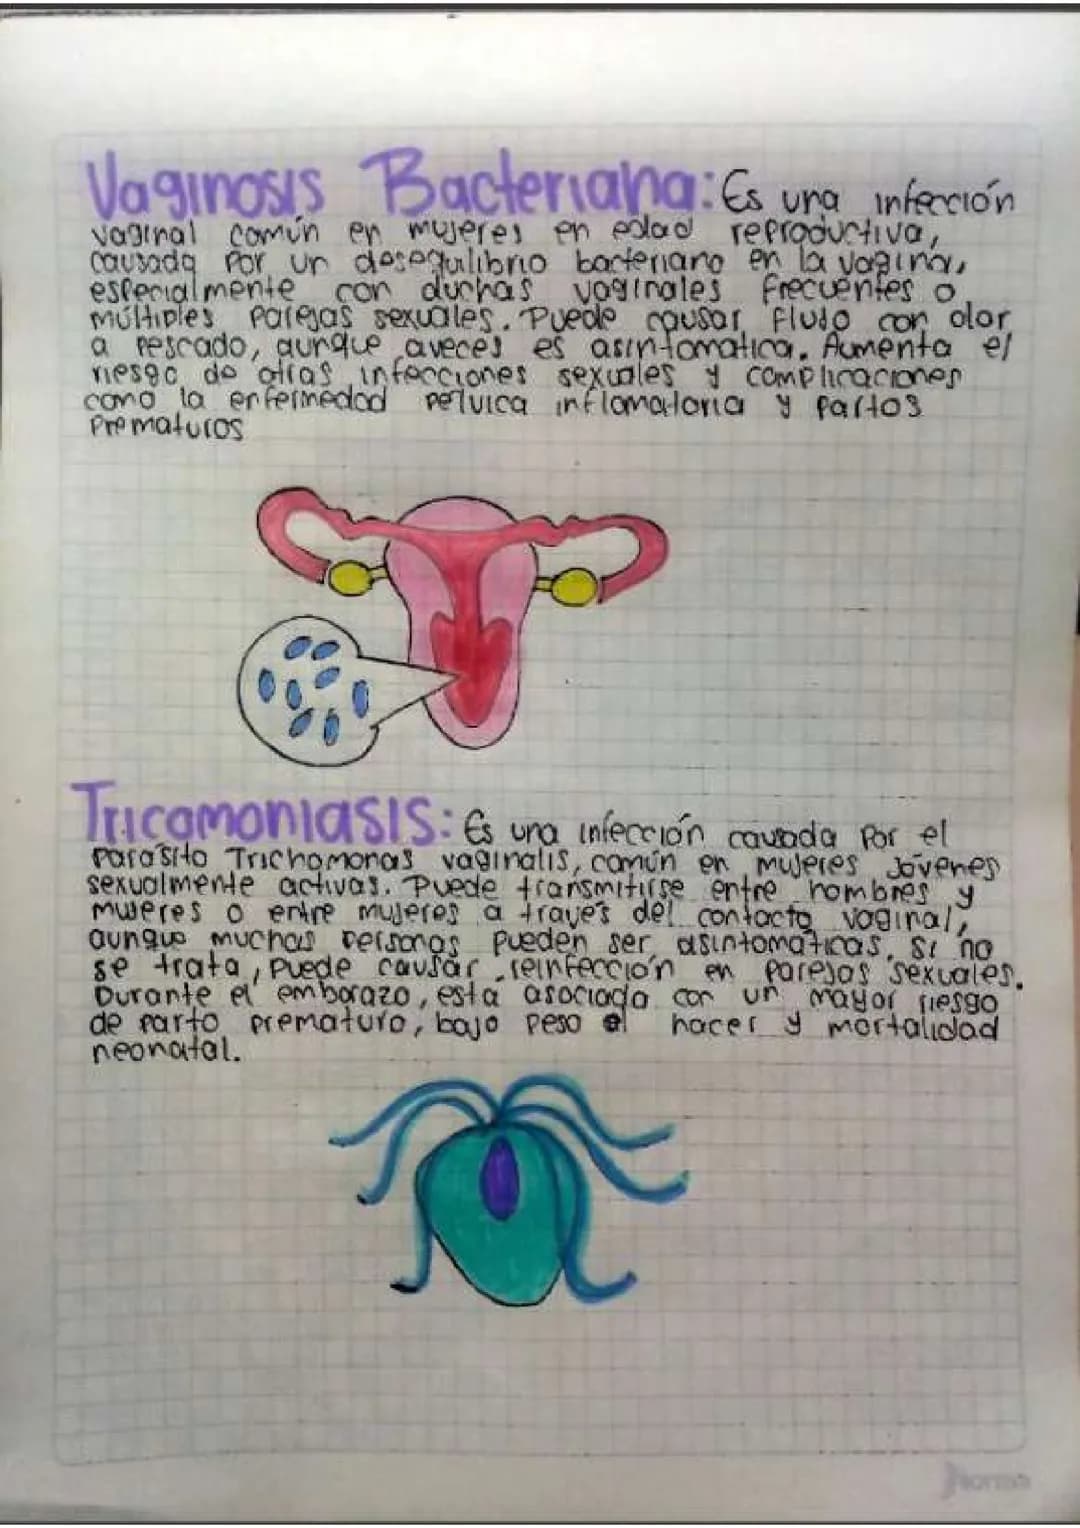 Vaginosis Bacteriana: Es una infección
vaginal común en mujeres en edad reproductiva,
causada por un desequilibrio bacteriano en la vagina,
especialmente con duchas vaginales frecuentes o
múltiples parejas sexuales. Puede causar flujo con olor
a pescado, aunque aveces es asintomatica. Aumenta el
riesgo de otras infecciones sexuales y complicaciones
como la enfermedad pelvica inflamatoria y partos
Prematuros
Tricomoniasis: Es una infección causada por el
parásito Trichomonas vaginalis, común en mujeres Jóvenes
sexualmente activas. Puede transmitirse entre hombres y
mujeres o entre mujeres a través del contacto vaginal,
aunque muchas personas pueden ser asintomáticas. Si no
se trata, puede causar reinfección en parejas sexuales.
Durante el embarazo, está asociada con un mayor riesgo
de parto prematuro, bajo peso al nacer y mortalidad
neonatal.
Norma